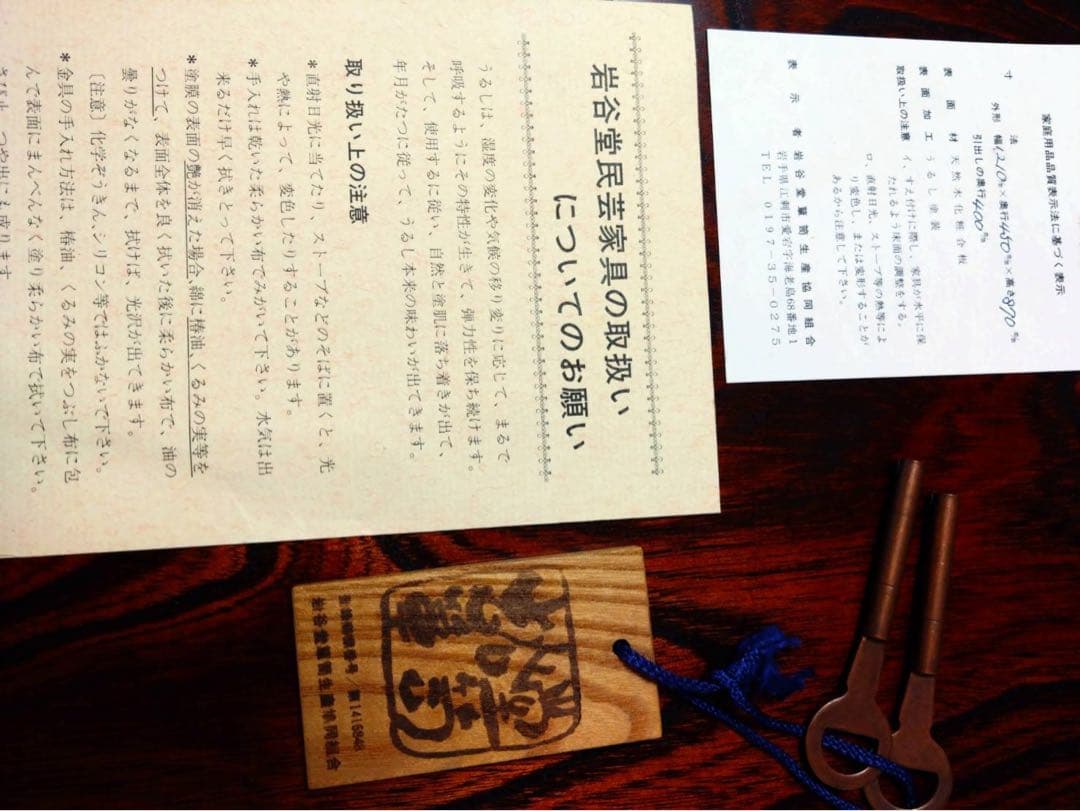 家庭用品品質表示法に基づく表示
寸法
外形 幅1210%×奥行450%×高さ870%
引出しの奥行400%
表面材 天然木化粧合板
表面加工 うるし塗装
取扱い上の注意 イ、すえ付けに際し、家具が水平に保
たれるよう床面の調整をする。
ロ、直射日光、ストーブ等の熱等によ
り変色し、または変形することが
あるから注意して下さい。
表示者 岩谷堂簞笥生産協同組合
岩手県江刺市愛宕字海老島68番地1
TEL 0197-35-0275
岩谷堂民芸家具の取扱い
についてのお願い
うるしは、湿度の変化や気候の移り変りに応じて、まるで
呼吸するようにその特性が生きて、弾力性を保ち続けます。
そして、使用するに従い、自然と塗肌に落ち着きが出て、
年月がたつに従って、うるし本来の味わいが出てきます。
取り扱い上の注意
*直射日光に当てたり、ストーブなどのそばに置くと、光
や熱によって、変色したりすることがあります。
*手入れは乾いた柔らかい布でみがいて下さい。水気は出
来るだけ早く拭きとって下さい。
*塗膜の表面の艶が消えた場合、綿に椿油、くるみの実等を
つけて、表面全体を良く拭いた後に柔らかい布で、油の
曇りがなくなるまで、拭けば、光沢が出てきます。
〔注意〕化学ぞうきん、シリコン等ではふかないで下さい。
*金具の手入れ方法は、椿油、くるみの実をつぶし布に包
んで表面にまんべんなく塗り柔らかい布で拭いて下さい。
さび止、つや出にも成ります
登録商標番号/第1416848
岩谷堂簞笥生産協同組合